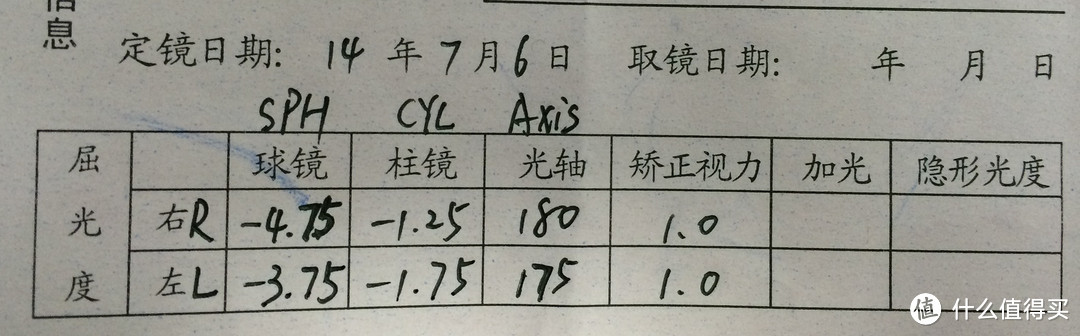 信息
定镜日期: 14 年 7 月 6 日 取镜日期: 年 月 日
SPH CYL Axis
屈光度 球镜 柱镜 光轴 矫正视力 加光 隐形光度
右R -4.75 -1.25 180 1.0
左L -3.75 -1.75 175 1.0
值 什么值得买